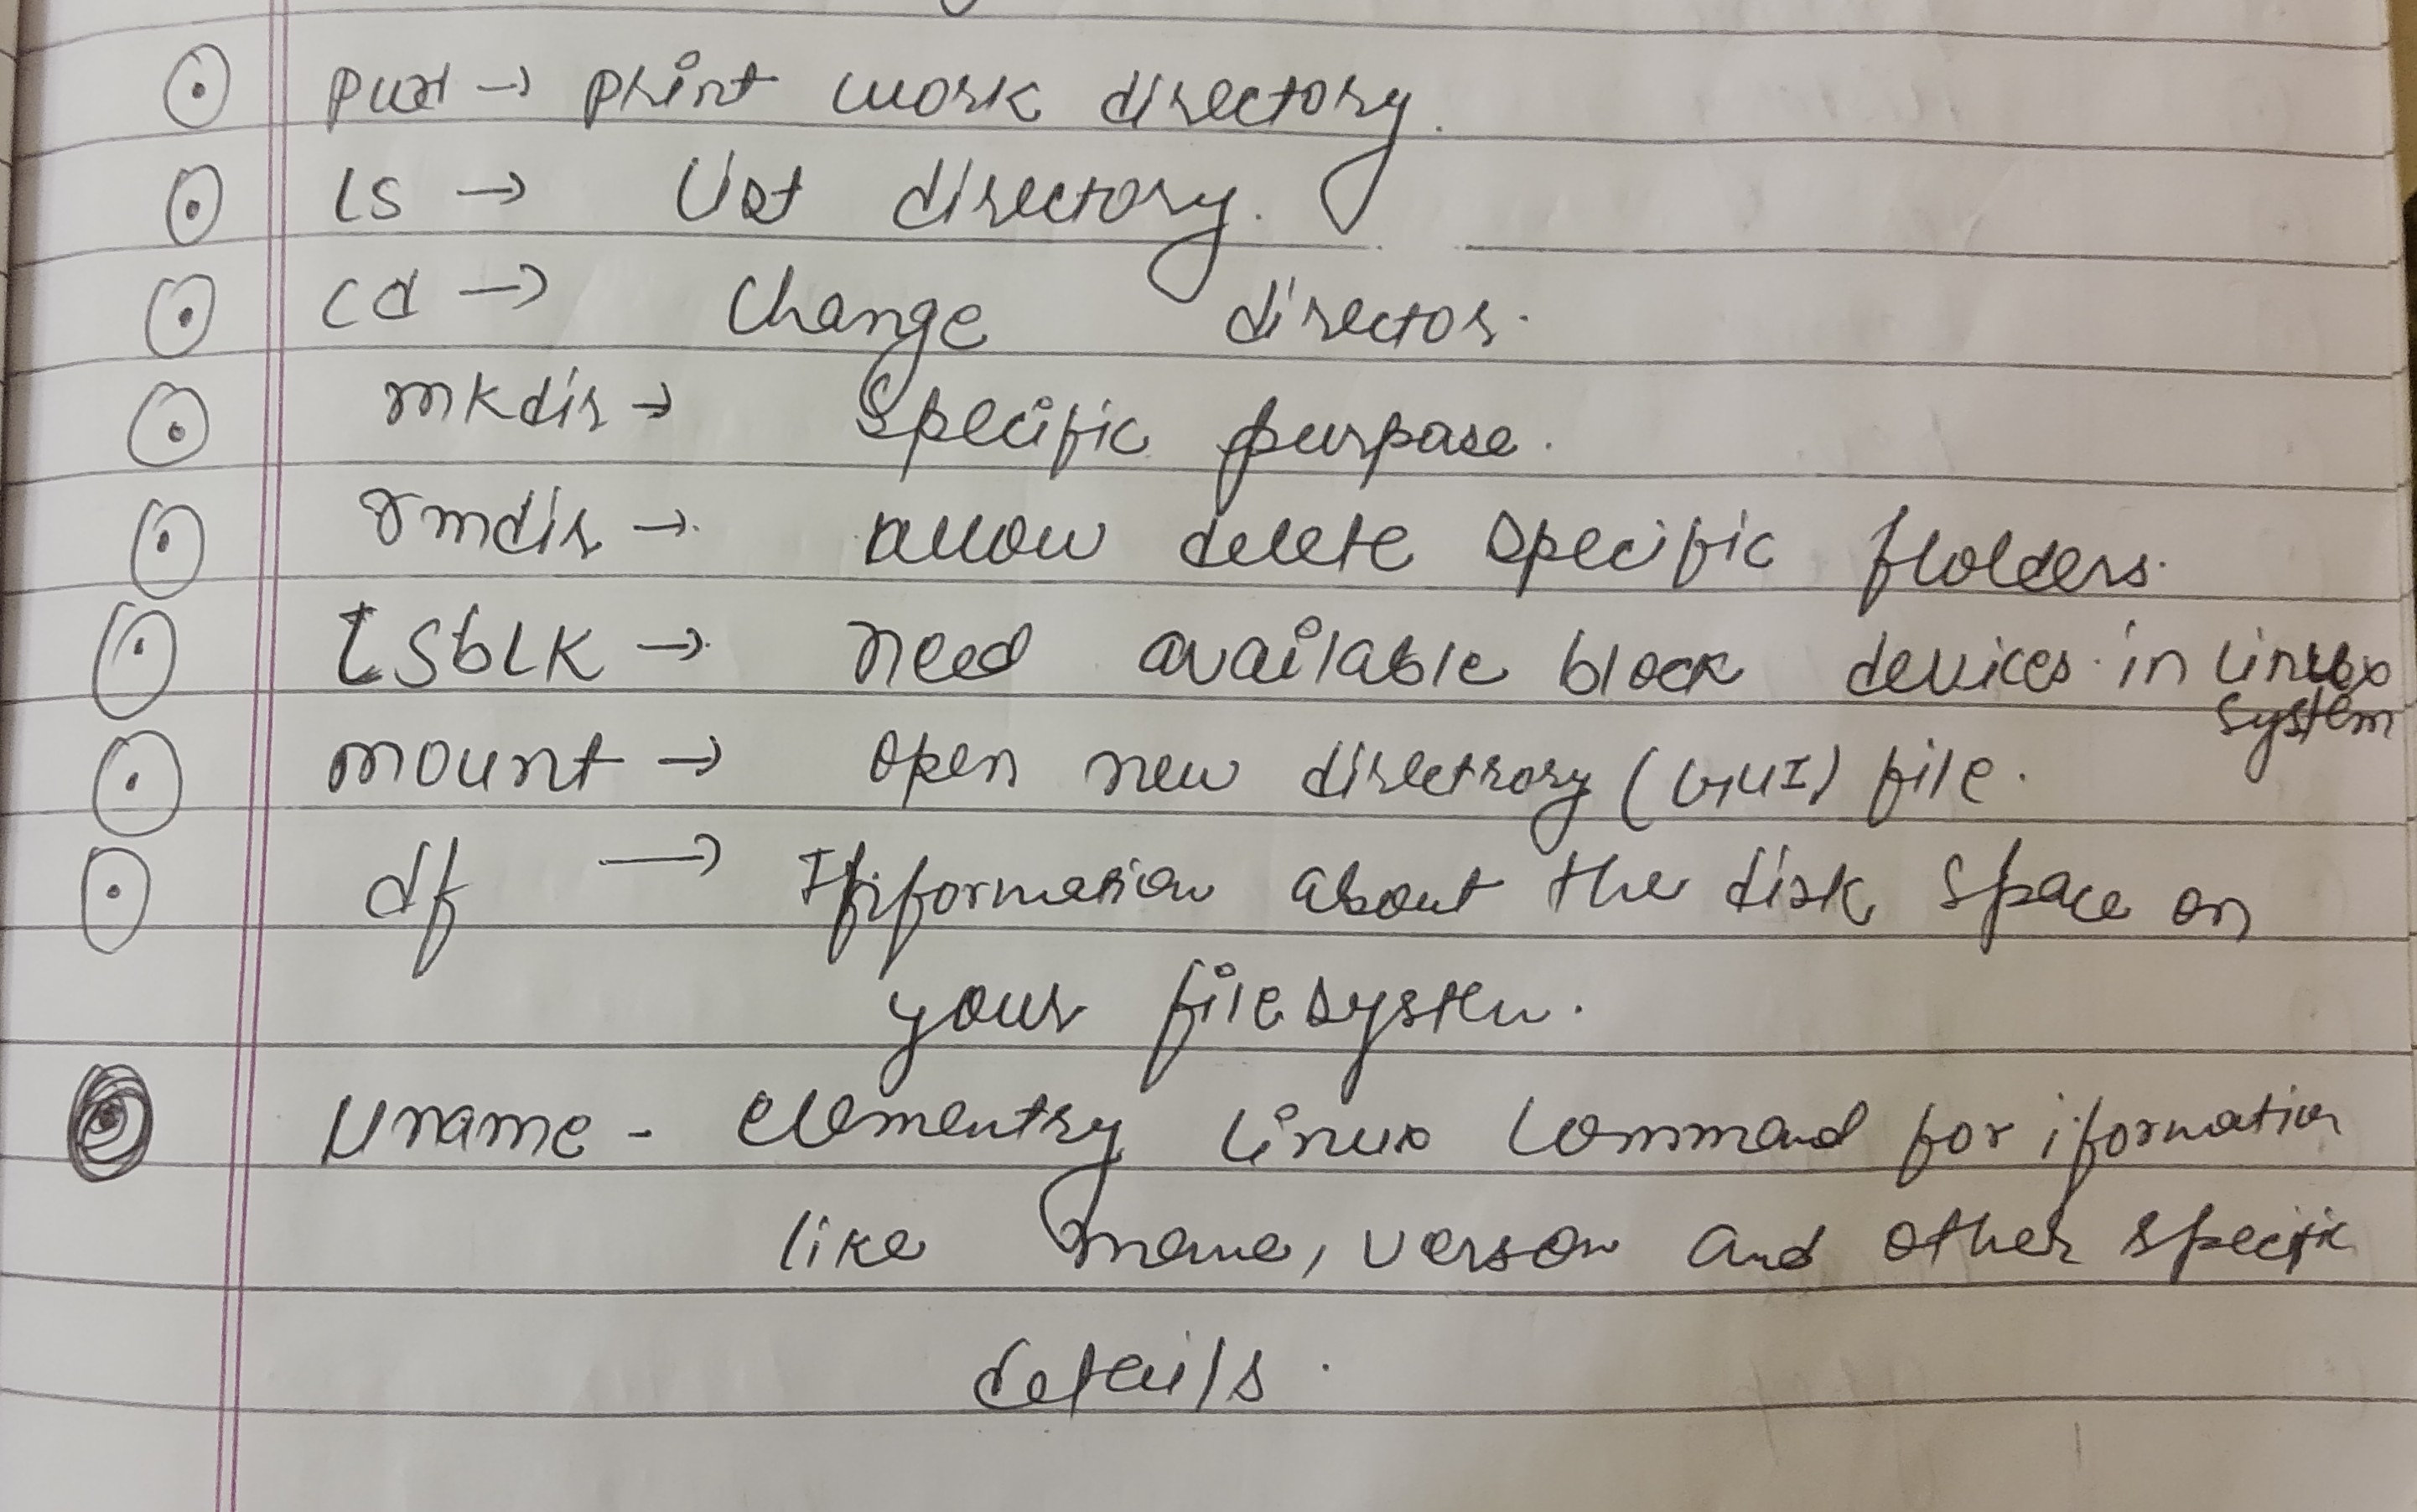 pwd → print work directory.
ls → list directory.
cd → change director.
mkdir → specific purpose.
rmdir → allow delete specific flolders.
lsblk → need available block devices in Linux
system
mount → open new directrory (GUI) file.
df → Ififormation about the disk space on
your filesystem.
Uname - elementry Linux Command for iformation
like name, verson and other specific
details.